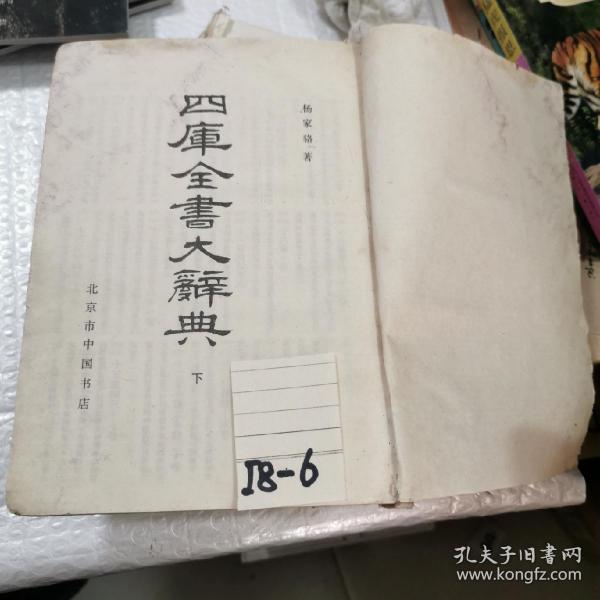 杨家骆著
四庫全書大辭典
下
北京市中国书店
I8-6
孔夫子旧书网
www.kongfz.com